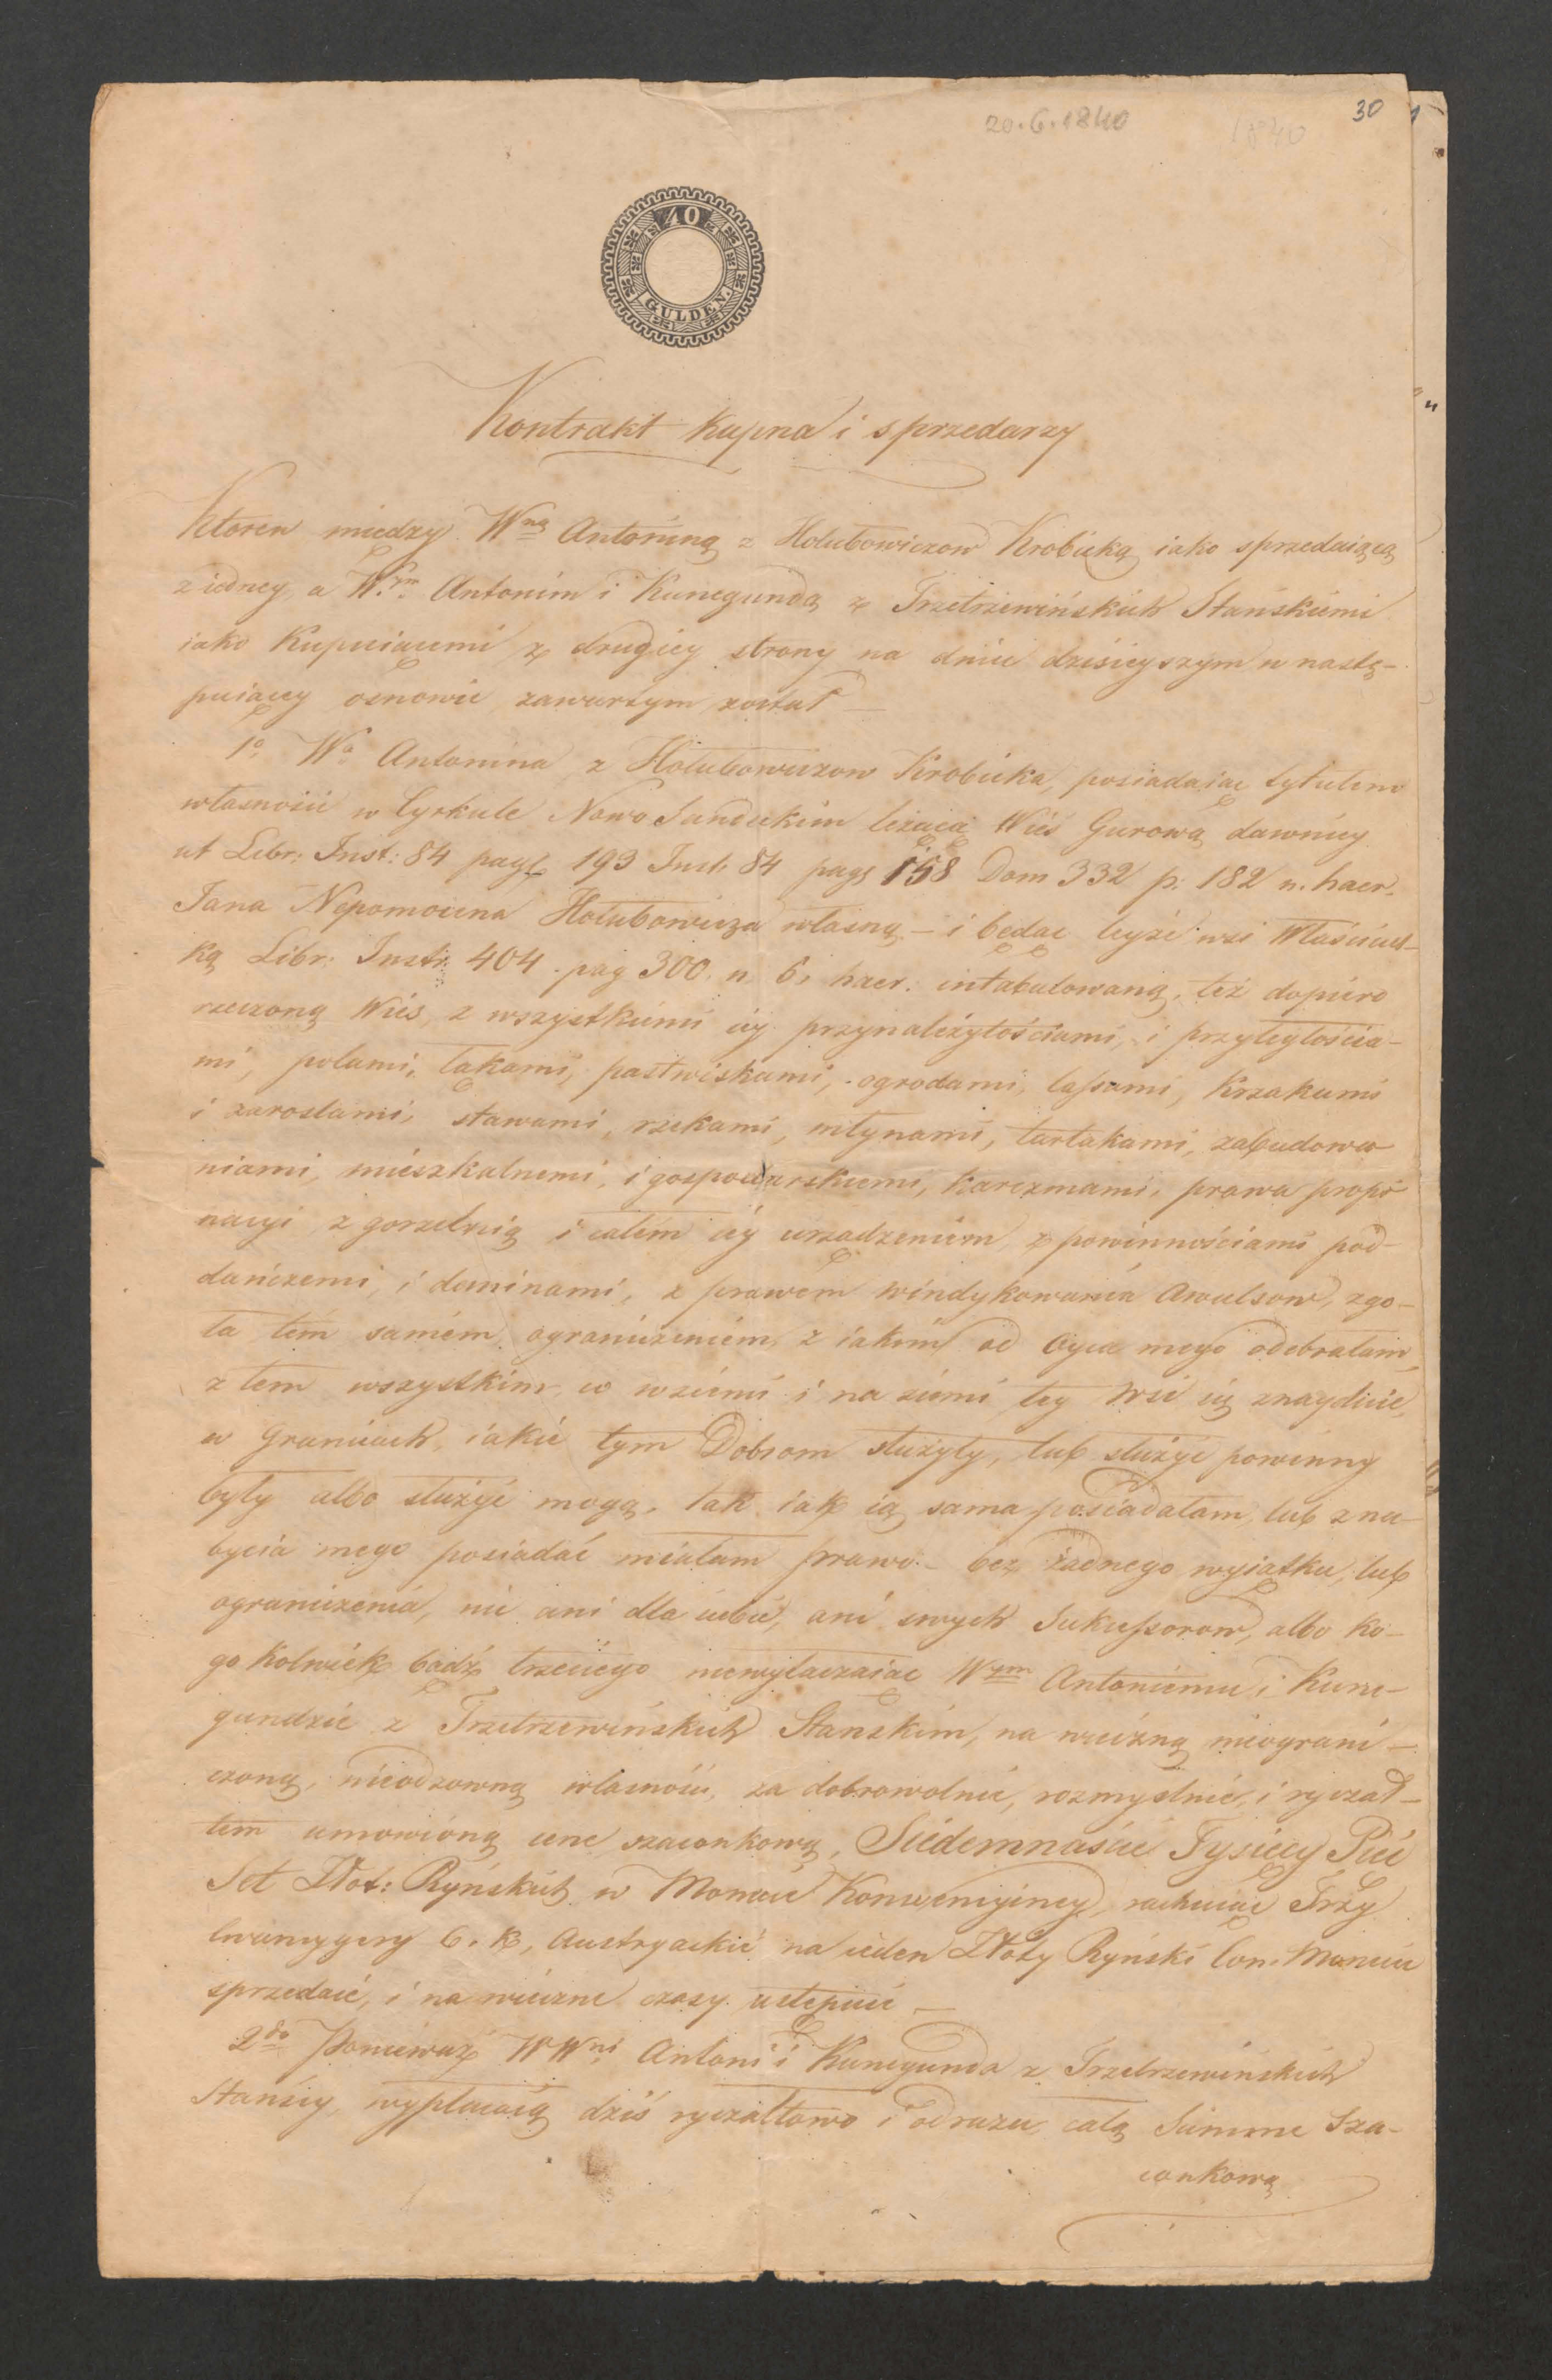 30
20.6.1840 1840
40
GULDEN
Kontrakt Kupna i sprzedarzy
Ktoren miedzy Wną Antoniną z Hołubowiczow Krobicką iako sprzedaiącą
z iedney, a W.ym Antonim i Kunegundą z Trzetrzewińskich Stańskiemi
iako Kupuiącemi z drugiey strony na dniu dzisieyszym w nastę-
puiącey osnowie zawartym został —
1o. Wa Antonina z Hołubowiczow Krobicka, posiadaiąc tytułem
własności w Cyrkule Nowo Sandeckim leżącą Wieś Gurową dawniey
ut Libr: Inst: 84 pag 193 Inst: 84 pag 158 Dom 332 p: 182 n. haer.
Jana Nepomocena Hołubowicza własną – i będąc teyże wsi Właściciel-
ką Libr: Instr: 404. pag 300. n. 6. haer. intabulowaną, też dopiero
rzeczoną Wieś, z wszystkiemi iey przynależytościami, i przyległościa-
mi, polami, łąkami, pastwiskami, ogrodami, lassami, Krzakami
i zaroslami, stawami, rzekami, młynami, tartakami, zabudowa
niami, mieszkalnemi, i gospodarskiemi, karczmami, prawa propi
nacyi z gorzelnią i całem iey urządzeniem, z powinnościami pod-
dańczemi, i daninami, z prawem windykowania Awulsow, zgo-
ła tém samém ograniczeniém, z iakim od Oyca mego odebrałam,
z tem wszystkim, co w ziemi i na ziemi tey Wsi się znayduie,
w Granicach, iakie tym Dobrom służyły, lub służyć powinny
były albo służyć mogą, tak iak ią sama posiadałam, lub z na-
bycia mego posiadać miałam prawo – bez żadnego wyiątku, lub
ograniczenia, nic ani dla siebie, ani swych Sukcessorow, albo Ko-
go Kolwiek bądź trzeciego niewyłączaiąc Wym Antoniemu i Kune-
gundzie z Trzetrzewińskich Stańskim, na wieczną nieograni-
czoną, nieodzowną własność, za dobrowolnie, rozmyślnie, i ryczał-
tem umowioną cene szacunkową, Siedemnaście Tysięcy Pięć
Set Złot: Ryńskich w Monecie Konwencyiney, rachuiąc Trzy
Cwancygiery C. K. Austryackie na ieden Złoty Ryński Con. Monecie
sprzedaie, i na wieczne czasy ustępuie —
2do Ponieważ WWni Antoni i Kunegunda z Trzetrzewińskich
Stańscy, wypłacaią dziś ryczałtowo i odrazu całą Summe Sza-
cunkową